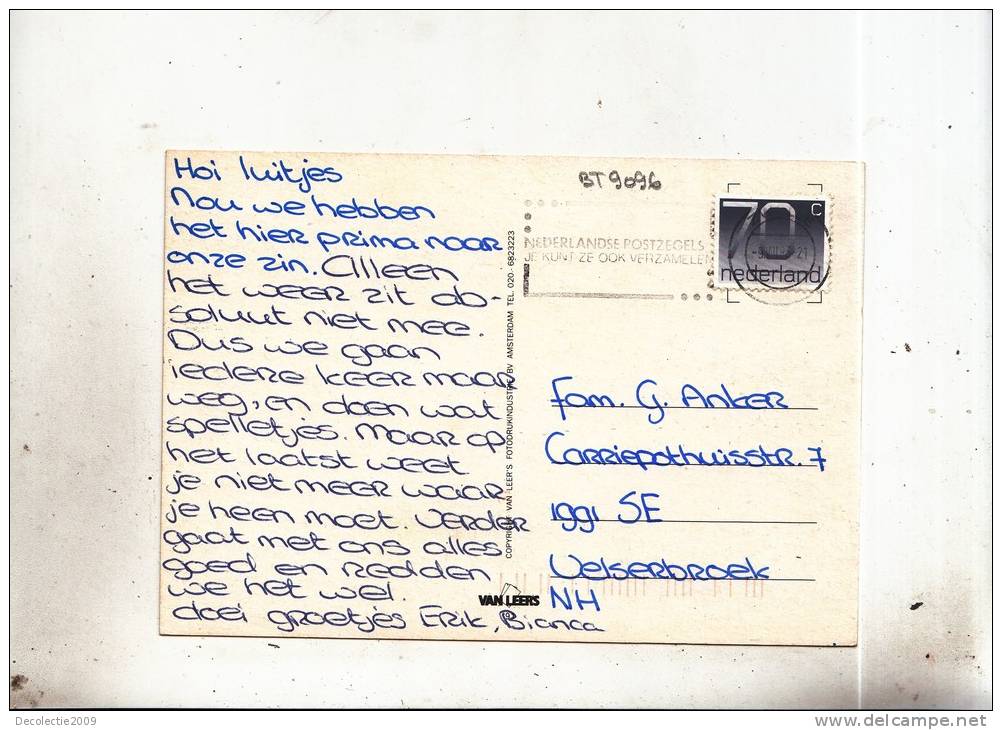 Hoi luitjes
Nou we hebben
het hier prima naar
onze zin. Alleen
het weer zit ab-
soluut niet mee.
Dus we gaan
iedere keer maar
weg, en doen wat
spelletjes. Maar op
het laatst weet
je niet meer waar
je heen moet. Verder
gaat met ons alles
goed en redden
we het wel.
doei groetjes Erik, Bianca
COPYRIGHT VAN LEER'S FOTODRUKINDUSTRIE BV AMSTERDAM TEL. 020-6823223
VAN LEERS
BT9096
NEDERLANDSE POSTZEGELS
JE KUNT ZE OOK VERZAMELEN
70 c
nederland
Fam. G. Anker
Carriepothuisstr. 7
1991 SE
Velserbroek
NH
Decolectie2009
www.delcampe.net